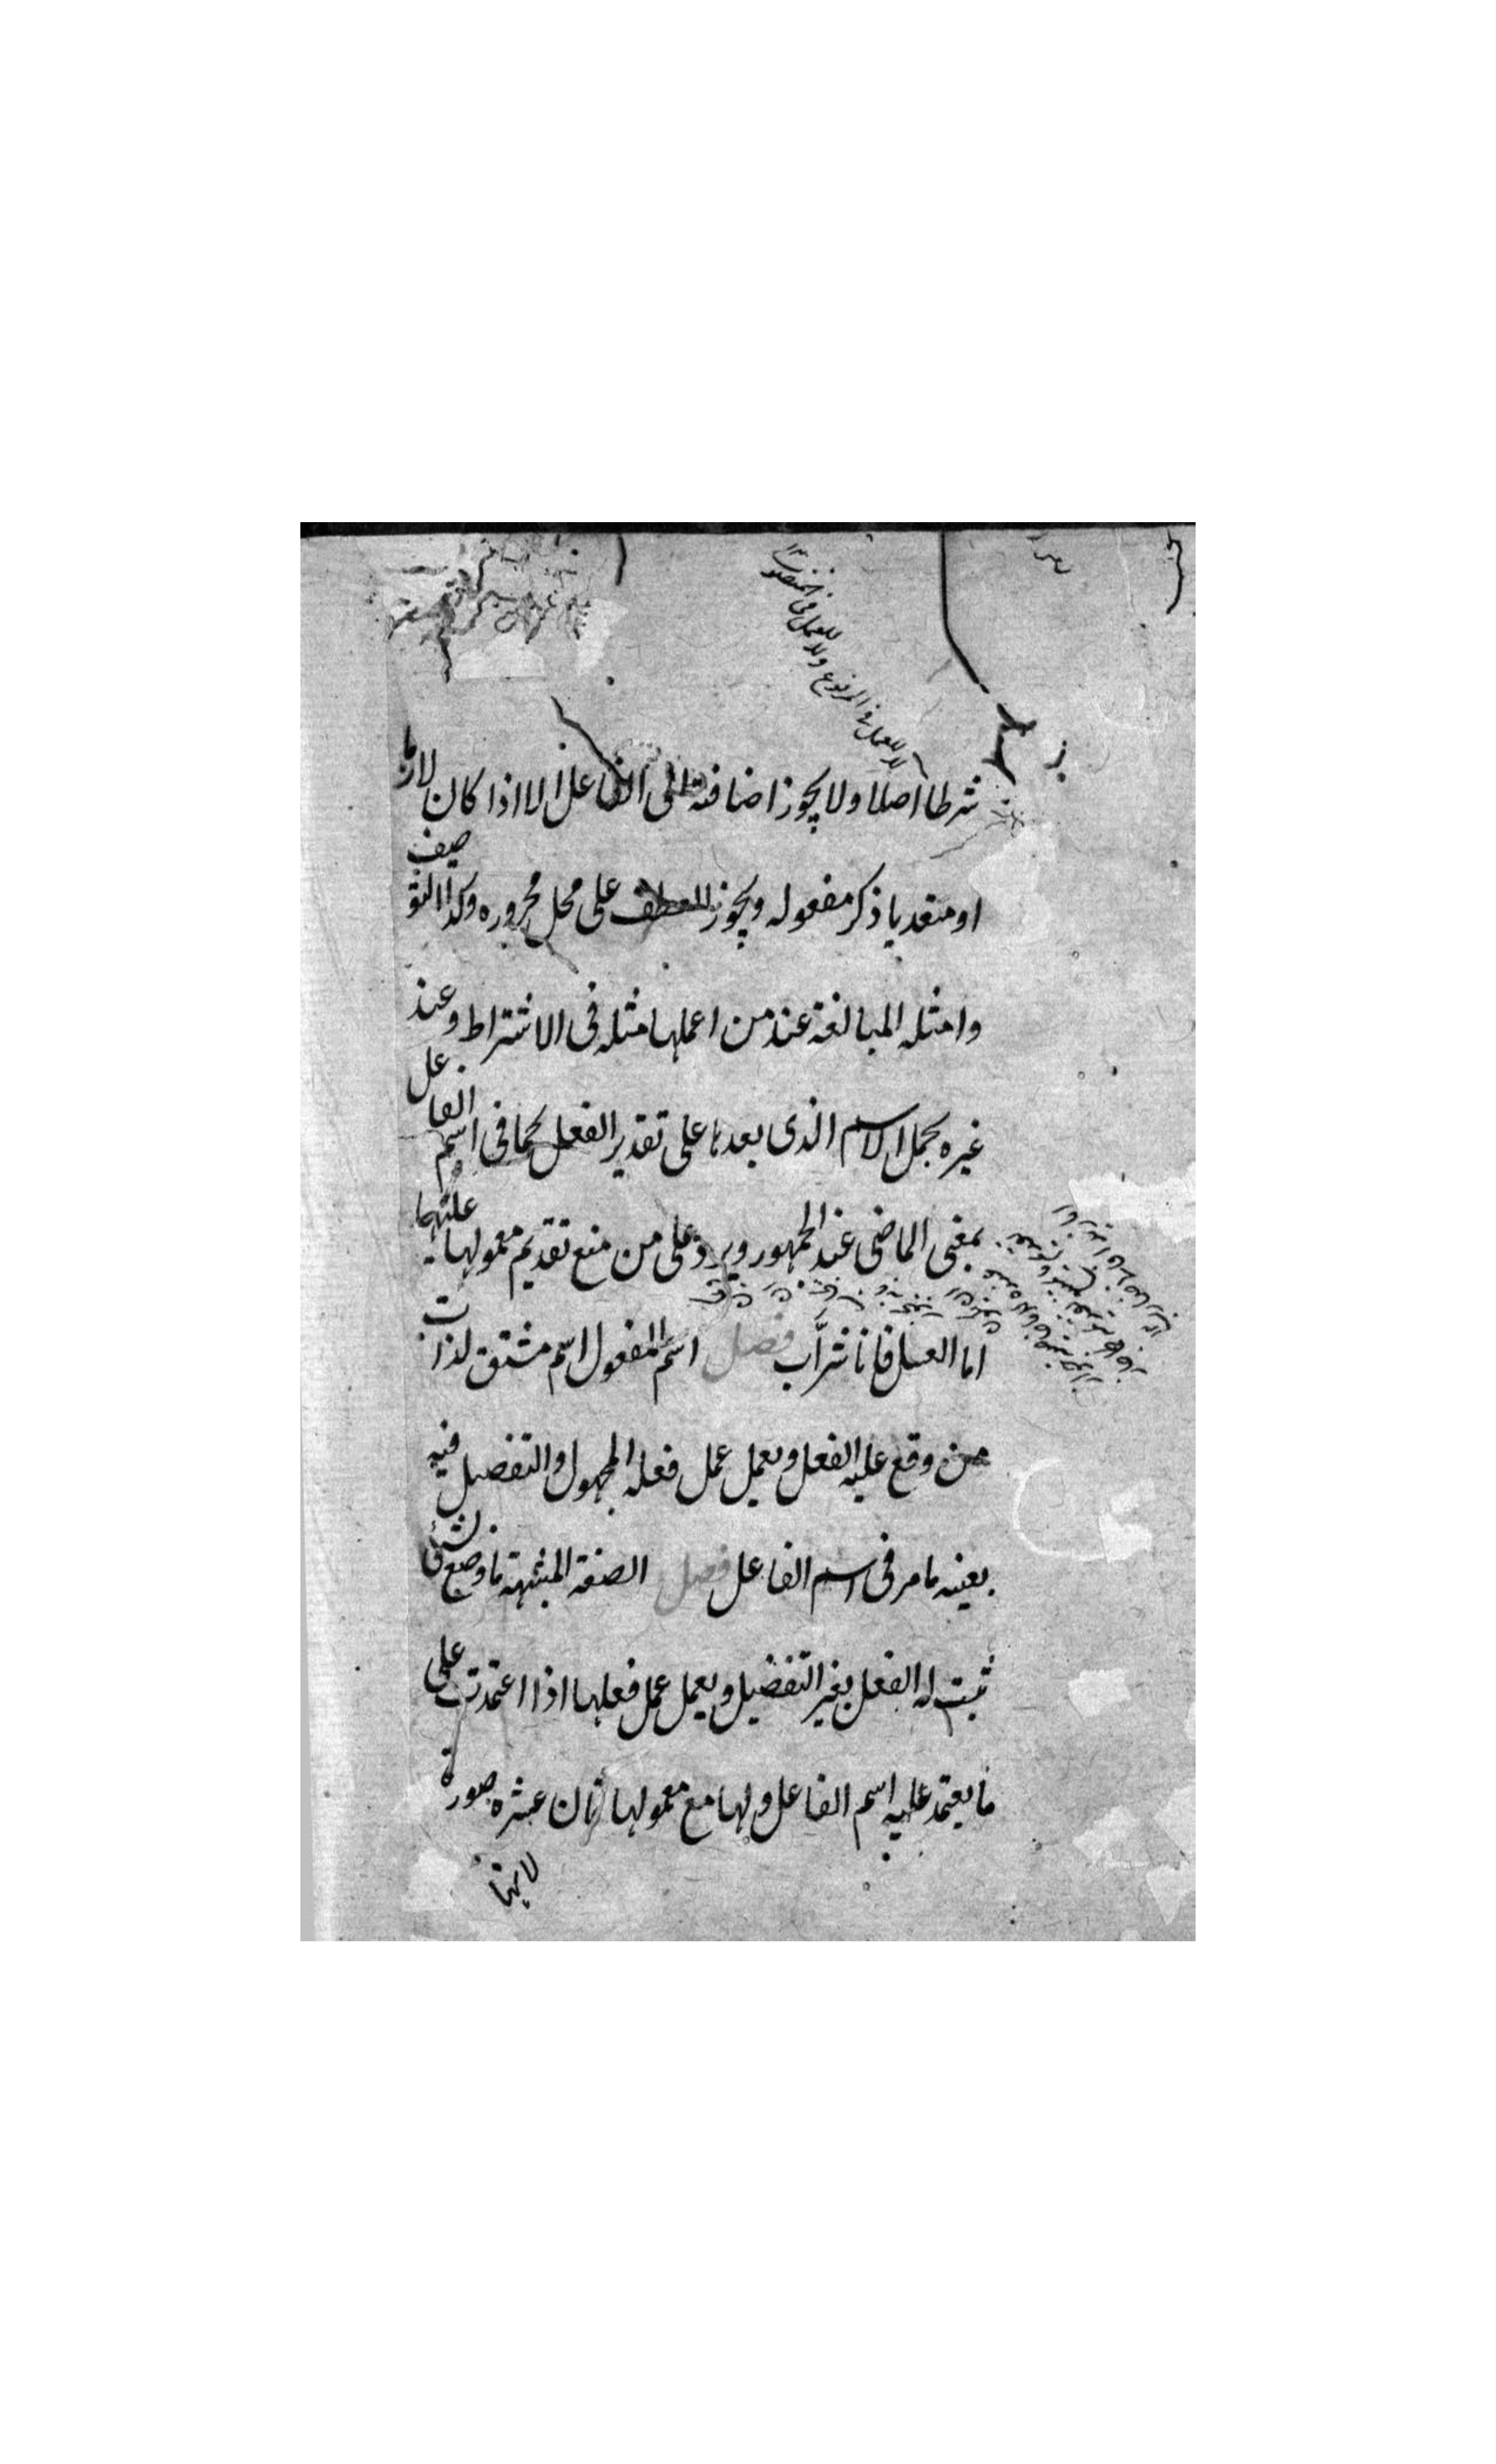 لا للعمل في المرفوع ولا للعمل في المنصوب ١٢
شرطا اصلا ولا يجوز اضافته الى الفاعل الا اذا كان لازما
او متعديا ذكر مفعوله ويجوز العطف على محل مجروره وكذا التوصيف
وامثله المبالغة عند من اعملها مثله فى الاشتراط وعند
غيره يحمل الاسم الذى بعدها على تقدير الفعل كما فى اسم الفاعل
بمعنى الماضى عند الجمهور ويرد على من منع تقديم معمولها عليها
اما العسل فانا شرّاب فصل اسم المفعول اسم مشتق لذات
من وقع عليه الفعل ويعمل عمل فعله المجهول والتفصيل فيه
بعينه مامر فى اسم الفاعل فصل الصفة المشبهة ما وضع لشئ
ثبت له الفعل بغير التفضيل ويعمل عمل فعلها اذا اعتمدت على
ما يعتمد عليه اسم الفاعل ولها مع معمولها ثمان عشره صورة
لانها